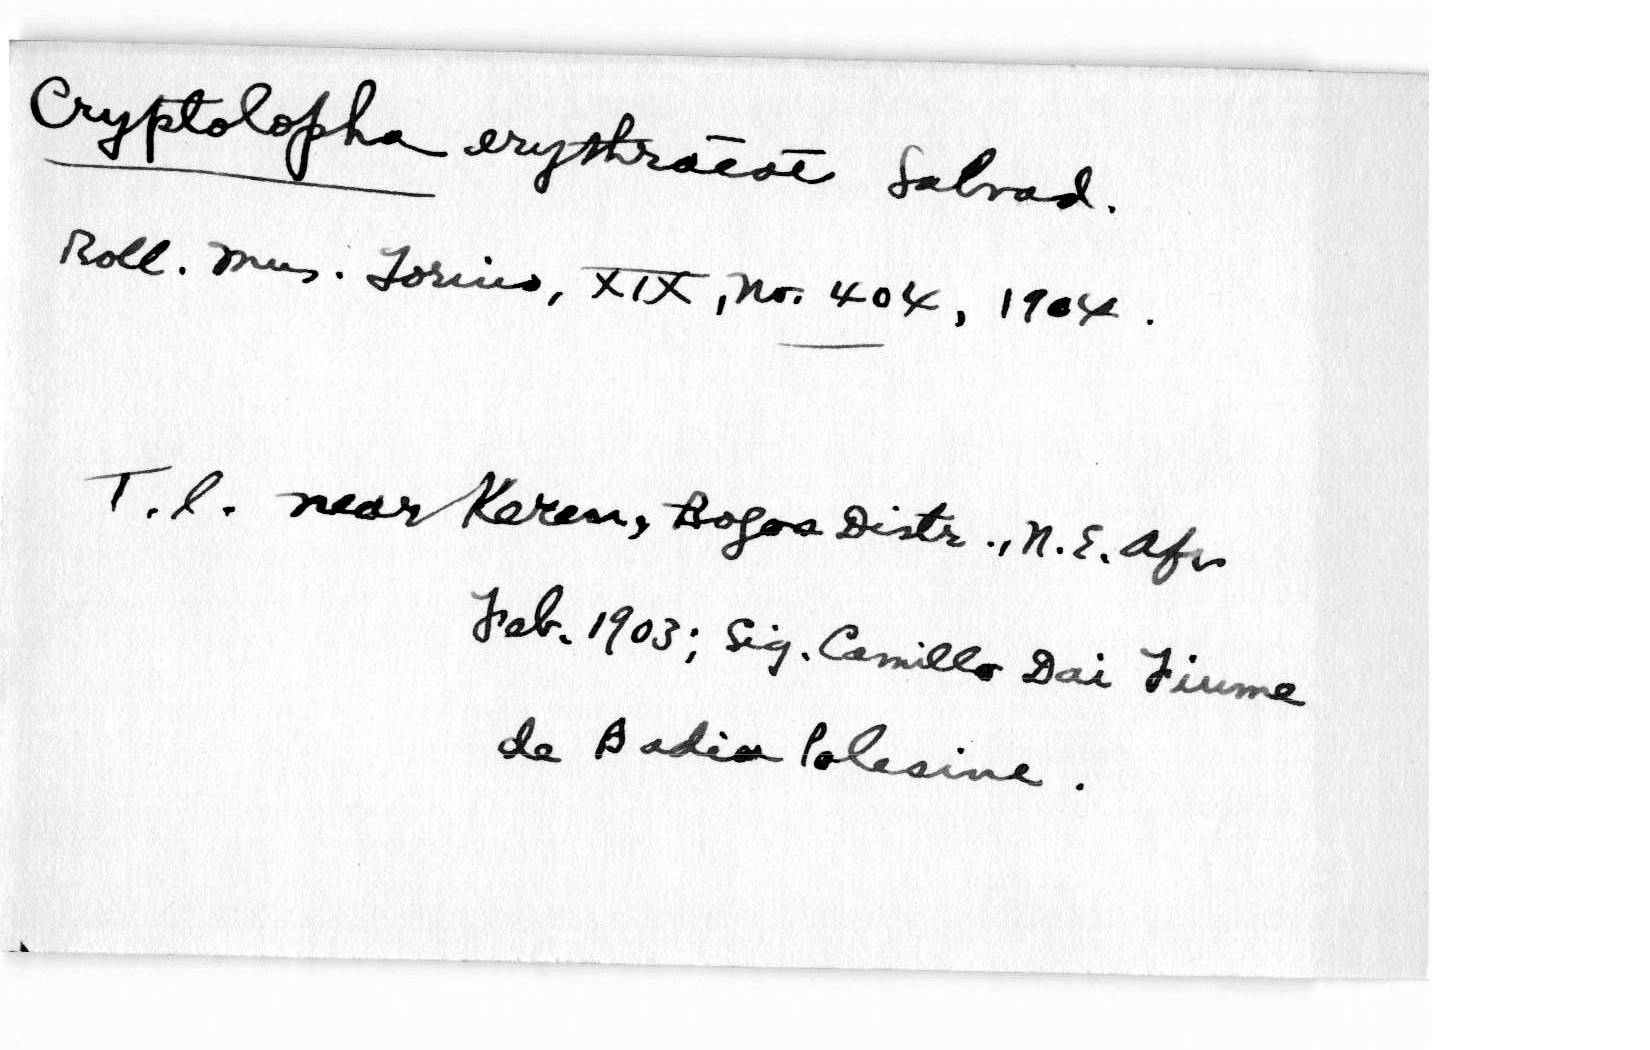 Cryptolopha erythraeae Salvad.
Boll. Mus. Torino, XIX, No. 404, 1904.
T.l. near Keren, Bogos Distr., N.E. Afr
Feb. 1903; Sig. Camillo Dai Fiume
de Badia Polesine.